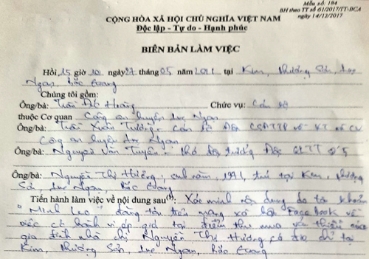 Mẫu số: 194
BH theo TT số 61/2017/TT-BCA
ngày 14/12/2017
CỘNG HÒA XÃ HỘI CHỦ NGHĨA VIỆT NAM
Độc lập - Tự do - Hạnh phúc
BIÊN BẢN LÀM VIỆC
Hồi 15 giờ 30 ngày 27 tháng 05 năm 2021 tại Kim, Phượng Sơn, Lục
Ngạn, Bắc Giang
Chúng tôi gồm:
Ông/bà: Hoàng Chức vụ: Cán bộ
thuộc Cơ quan Công an huyện Lục Ngạn
Ông/bà: Trần Xuân Trường - Cán bộ Đội
Công an huyện Lục Ngạn
Ông/bà: Nguyễn Văn Tuyên Đội
Ông/bà: Nguyễn Thị Hường, sinh năm 1991, trú tại Kim, Phượng
Sơn, Lục Ngạn, Bắc Giang
Tiến hành làm việc về nội dung sau: Xác minh nội dung do tài khoản
đăng tải trên mạng xã hội Facebook về
việc có hành vi ép giá tại điểm thu mua vải thiều của
gia đình nhà chị Nguyễn Thị Hường có địa chỉ tại
Kim, Phượng Sơn, Lục Ngạn, Bắc Giang